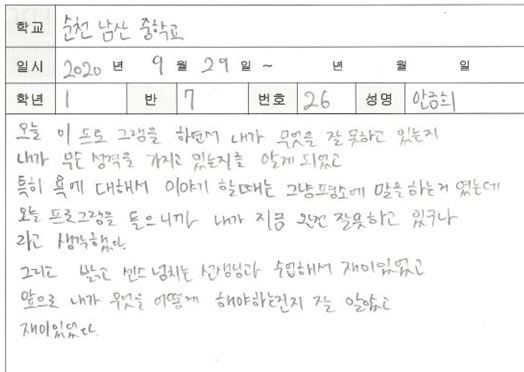 학교 순천 남산 중학교
일시 2020 년 9 월 29 일 ~ 년 월 일
학년 1 반 7 번호 26 성명 안금희
오늘 이 프로 그램을 하면서 내가 무엇을 잘못하고 있는지
내가 무슨 성격을 가지고 있는지를 알게 되었고
특히 욕에 대해서 이야기 할때는 그냥평소에 말을하는거 였는데
오늘 프로그램을 들으니까 내가 지금 완전 잘못하고 있구나
라고 생각했다.
그리고 밝고 센스 넘치는 선생님과 수업해서 재미있었고
앞으로 내가 무엇을 어떻게 해야하는건지 잘 알았고
재미있었다.